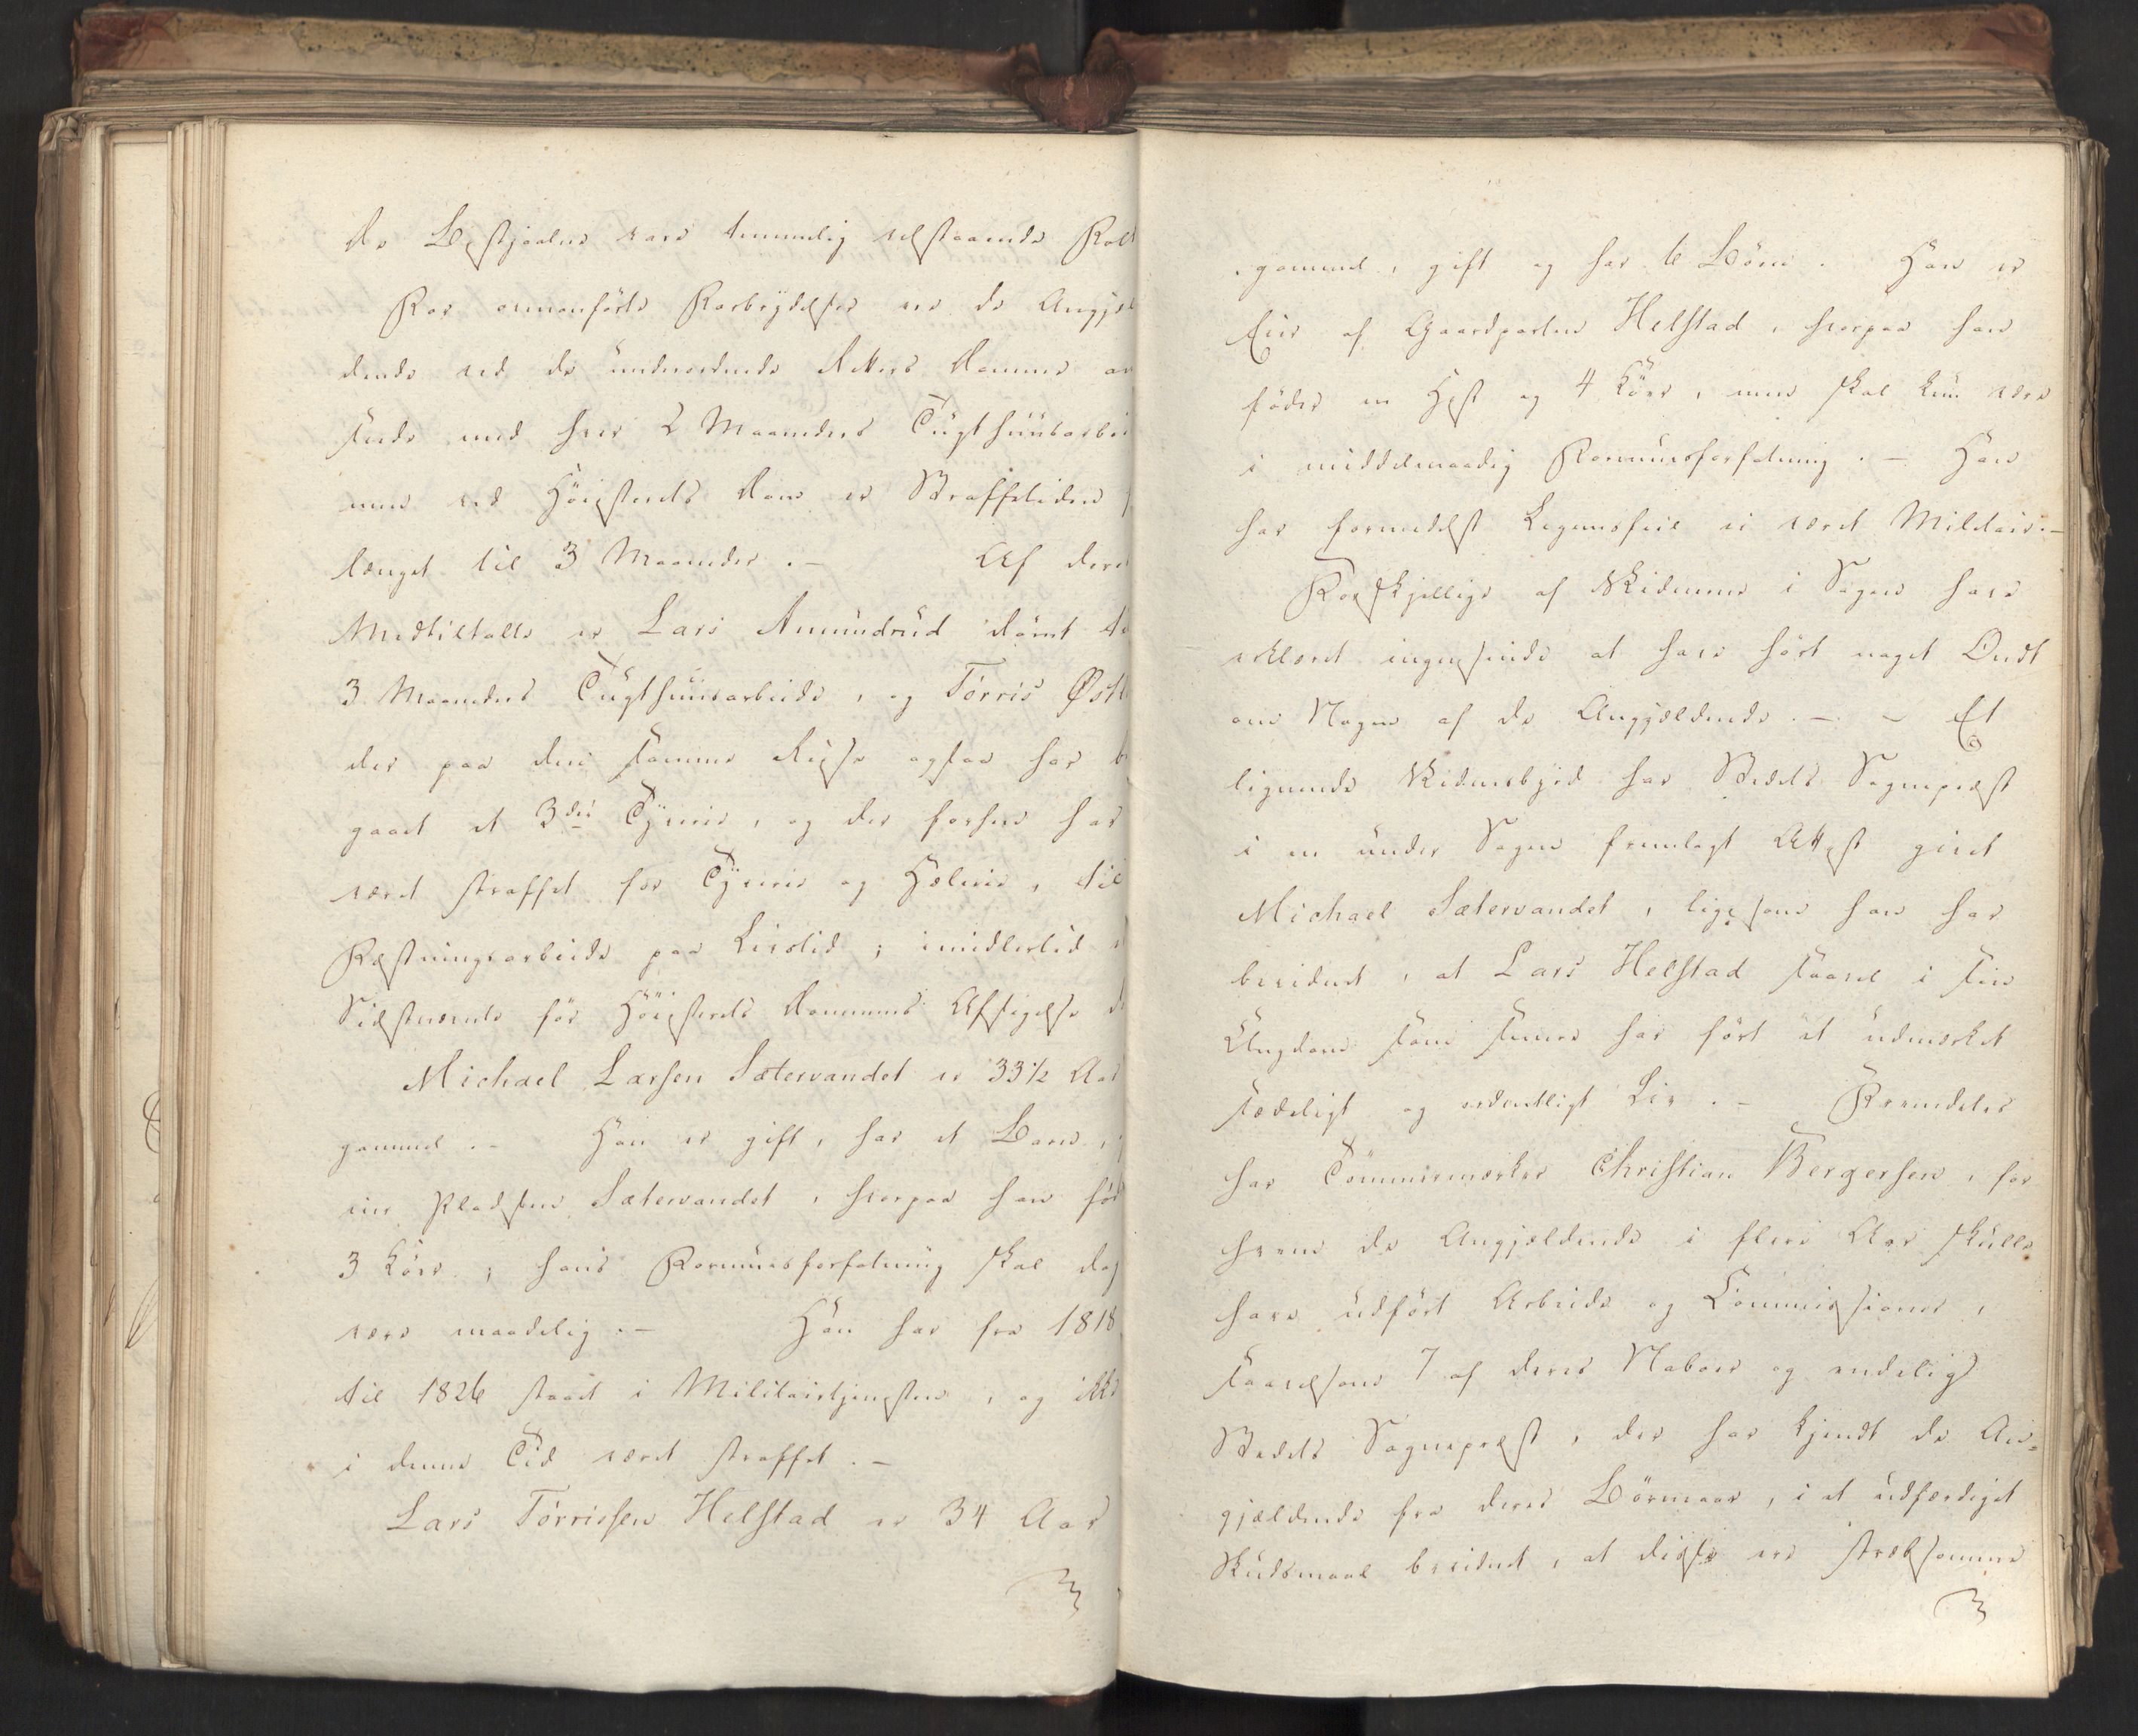 de Bestjaalne vare temmelig velstaaende Folk
For ommanførte Forbrydelser ere de Angjæl
dende ved de underordnede Retters Domme an
seede med hver 2 Maaneders Tugthuusarbei
men ved Høiesterets Dom er Straffetiden
længet til 3 Maaneder. — Af dere
Medtiltalte er Lars Amundrud dömt t
3 Maaneders Tugthuusarbeide, og Törris Øst
der paa den samme Reise ogsaa har b
gaaet et 3die Tyverie, og der forhen har
været straffet for Tyverie og Hælerie, til
Fæstningsarbeide paa Livstid; imidlertid
Sidstnævnte før Høiesterets Dommens Afsigelse d
Michael Larsen Sætervandet er 33½ Aar
gammel. — Han er gift, har et Barn,
eier Pladsen Sætervandet, hvorpaa han fød
3 Köer; hans Formuesforfatning skal dog
være maadelig. — Han har fra 1818
til 1826 staaet i Militairtjenesten, og ikke
i denne Tid været straffet. —
Lars Törrissen Helstad er 34 Aar
gammel, gift og har 6 Börn. Han er
Eier af Gaardparten Helstad, hvorpaa han
föder en Hest og 4 Köer, men skal kun være
i middelmaadig Formuesforfatning. — Han
har formedelst Legemsfeil ei været Militair. —
Forskjellige af Vidnerne i Sagen have
erklæret ingensinde at have hört noget Ondt
om Nogen af de Angjældende. — - Et
lignende Vidnesbyrd har Stedets Sognepræst
i en under Sagen fremlagt Attest givet
Michael Sætervandet, ligesom han har
bevidnet, at Lars Helstad saavel i sin
Ungdom som senere har fört et udmærket
sædeligt og ordentligt Liv. — Fremdeles
har Tömmermærker Christian Bergersen, for
hvem de Angjældende i flere Aar skulle
have udfört Arbeide og Commissioner,
saavelsom 7 af deres Naboer og endelig
Stedets Sognepræst, der har kjendt de An=
gjældende fra deres Börneaar, i et udfærdiget
Skudsmaal bevidnet, at disse ere stræbsomme